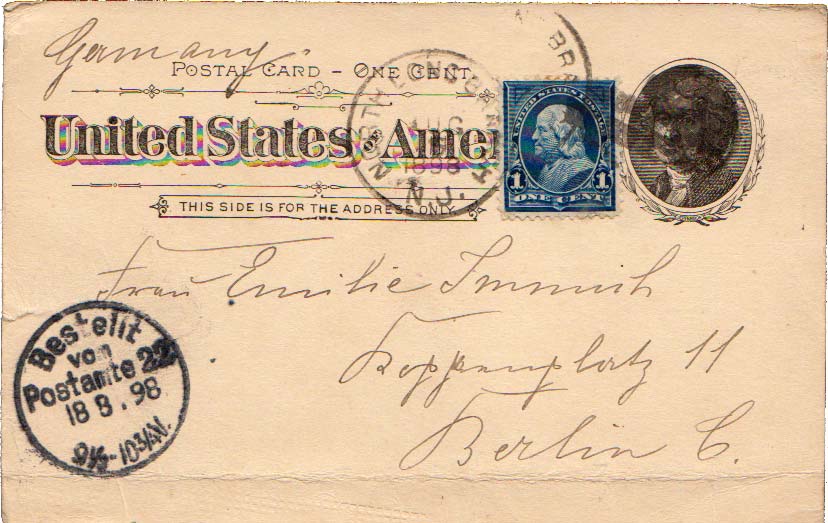 Germany.
POSTAL CARD – ONE CENT.
United States of Amer
THIS SIDE IS FOR THE ADDRESS ONLY.
NORTH LONG BRANCH
AUG
1898
N.J.
UNITED STATES POSTAGE
1 1
ONE CENT
Frau Emilie Immich
Koppenplatz 11
Berlin C.
Bestellt
vom
Postamte 22
18 8.98
9½-10¾V.